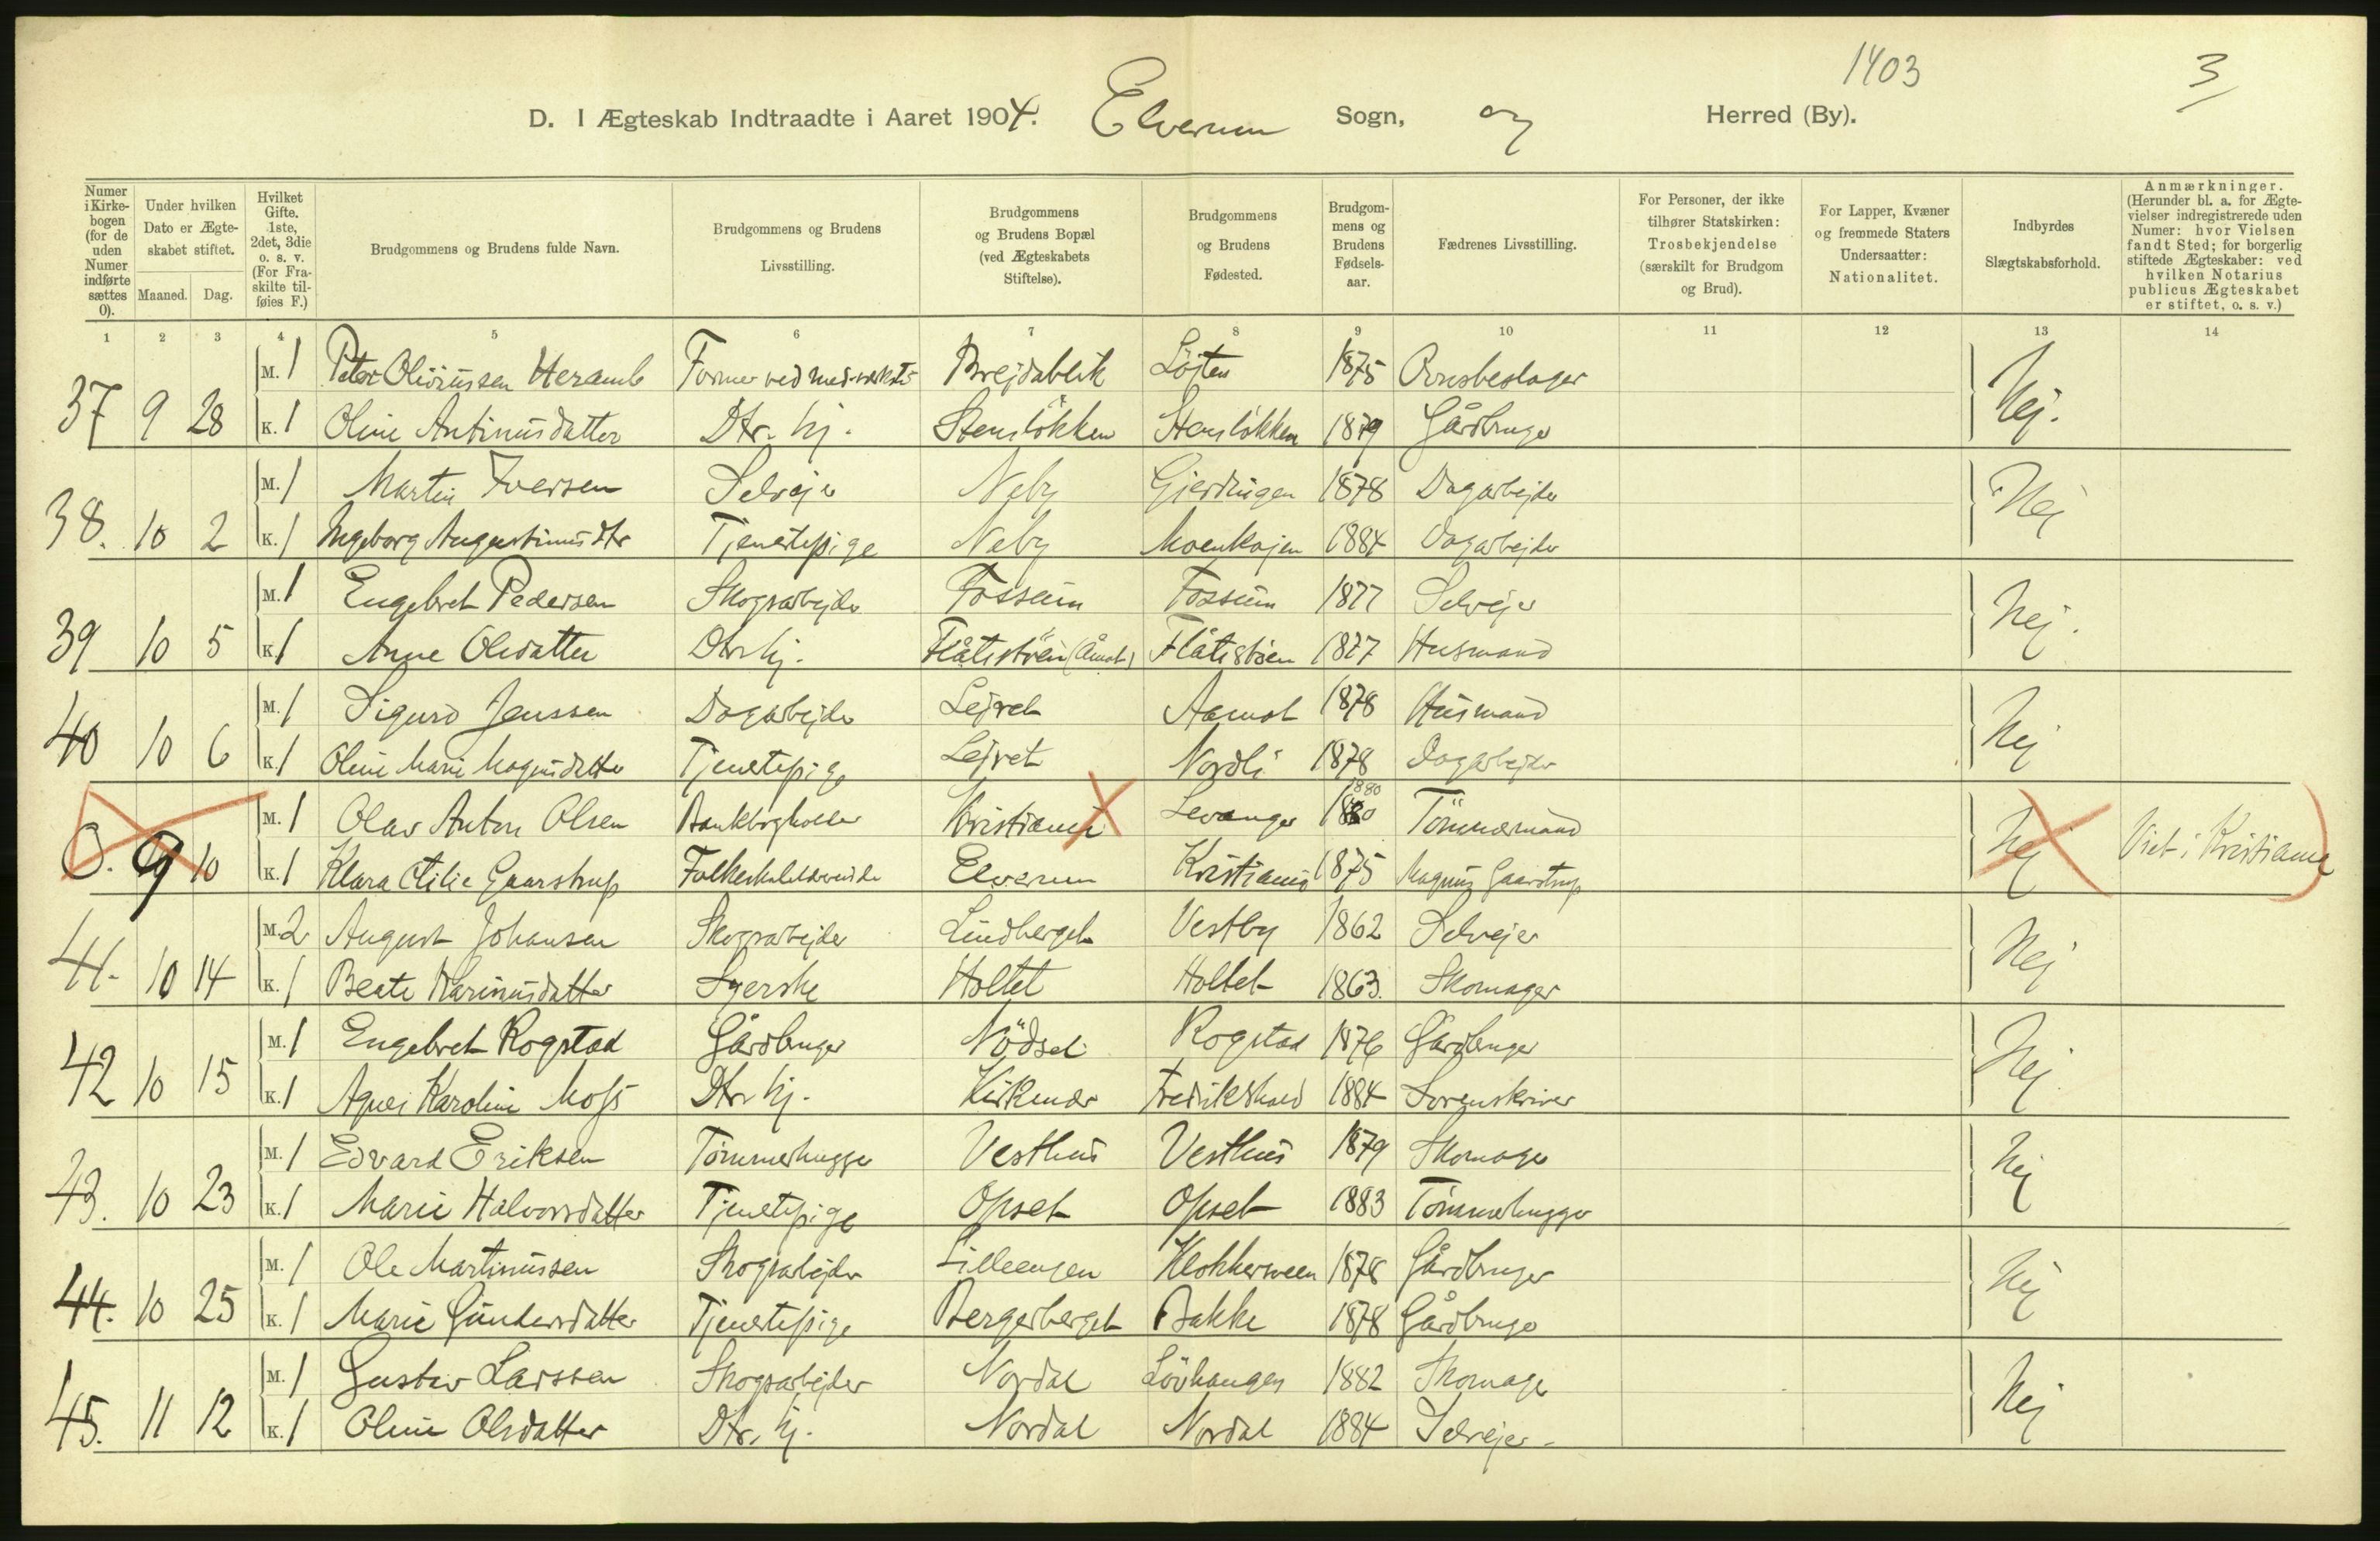 1403
3
D. I Ægteskab Indtraadte i Aaret 1904. Elverum Sogn, og Herred (By).
Numer i Kirkebogen (for de uden Numer indførte sættes 0).
Under hvilken Dato er Ægteskabet stiftet.
Maaned. Dag.
Hvilket Gifte. 1ste, 2det, 3die o. s. v. (For Fraskilte tilføies F.)
Brudgommens og Brudens fulde Navn.
Brudgommens og Brudens Livsstilling.
Brudgommens og Brudens Bopæl (ved Ægteskabets Stiftelse).
Brudgommens og Brudens Fødested.
Brudgommens og Brudens Fødselsaar.
Fædrenes Livsstilling.
For Personer, der ikke tilhører Statskirken: Trosbekjendelse (særskilt for Brudgom og Brud).
For Lapper, Kvæner og fremmede Staters Undersaatter: Nationalitet.
Indbyrdes Slægtskabsforhold.
Anmærkninger. (Herunder bl. a. for Ægtevielser indregistrerede uden Numer: hvor Vielsen fandt Sted; for borgerlig stiftede Ægteskaber: ved hvilken Notarius publicus Ægteskabet er stiftet, o. s. v.)
1 2 3 4 5 6 7 8 9 10 11 12 13 14
M. 1 Peter Olivinussen Heramb Former ved Brejdablik Löjten 1875
37 9 28 Nej.
K. 1 Oline Antinusdatter Dtr. hj. Stenslökken Stenslökken 1879 Gårdbruger
M. 1 Martin Iversen Selvejer Neby Gjerdingen 1878 Dagarbejder
38. 10 2 Nej
K. 1 Ingeborg Augustinusdtr Tjenestepige Neby Moenkojen 1884 Dagarbejder
M. 1 Engebret Pedersen Skogsarbejder Fossum Fossum 1877 Selvejer
39 10 5 Nej.
K. 1 Anne Olsdatter Dtr. hj. Flåtestöen (Åmot) Flåtestöen 1877 Husmand
M. 1 Sigurd Jenssen Dagarbejder Lejret Aamot 1878 Husmand
40 10 6 Nej
K. 1 Oline Marie Magnusdatter Tjenestepige Lejret Nordli 1878 Dagarbejder
1880
M. 1 Olav Anton Olsen Bankbogholder Kristiania Levanger 1880 Tömmermand
0. 9 10 Nej Viet i Kristiania
K. 1 Klara Otilie Gaarstrup Folkeskolelærerinde Elverum Kristiania 1875 Magnus Gaarstrup
M. 2 August Johansen Skogsarbejder Lindberget Vestby 1862 Selvejer
41. 10 14 Nej
K. 1 Beate Karinusdatter Syerske Holtet Holtet 1863. Skomager
M. 1 Engebret Rogstad Gårdbruger Nödset Rogstad 1876 Gårdbruger
42 10 15 Nej.
K. 1 Agnes Karoline Moss Dtr. hj. Kirkenær Fredrikshald 1884 Sorenskriver
M. 1 Edvard Eriksen Tömmerhugger Vesthus Vesthus 1879 Skomager
43. 10 23 Nej
K. 1 Marie Halvorsdatter Tjenestepige Opset Opset 1883 Tömmerhugger
M. 1 Ole Martinussen Skogsarbejder Lilleengen Klokkerveen 1878 Gårdbruger
44. 10 25 Nej
K. 1 Marie Gundersdatter Tjenestepige Bergerberget Bakke 1878 Gårdbruger
M. 1 Gustav Larssen Skogsarbejder Nordal Lövhaugen 1882 Skomager
45. 11 12 Nej
K. 1 Oline Olsdatter Dtr. hj. Nordal Nordal 1884 Selvejer.